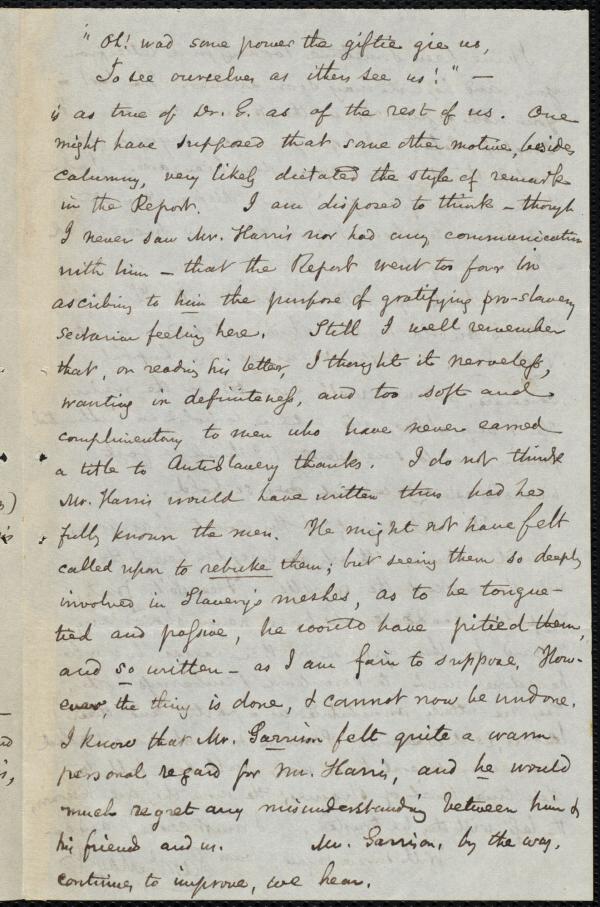 "Oh! wad some power the giftie gie us,
To see ourselves as ithers see us!" —
is as true of Dr. E. as of the rest of us. One
might have supposed that some other motive, besides
calumny, very likely dictated the style of remark
in the Report. I am disposed to think – though
I never saw Mr. Harris nor had any communication
with him – that the Report went too far in
ascribing to him the purpose of gratifying pro-slavery
sectarian feeling here. Still I well remember
that, on reading his letter, I thought it nerveless,
wanting in definiteness, and too soft and
complimentary to men who have never earned
a title to AntiSlavery thanks. I do not think
Mr. Harris would have written thus had he
fully known the men. He might not have felt
called upon to rebuke them; but seeing them so deeply
involved in Slavery's meshes, as to be tongue-
tied and passive, he would have pitied them,
and so written – as I am fain to suppose. How-
ever, the thing is done, & cannot now be undone.
I know that Mr. Garrison felt quite a warm
personal regard for Mr. Harris, and he would
much regret any misunderstanding between him &
his friends and us. Mr. Garrison, by the way,
continues to improve, we hear.